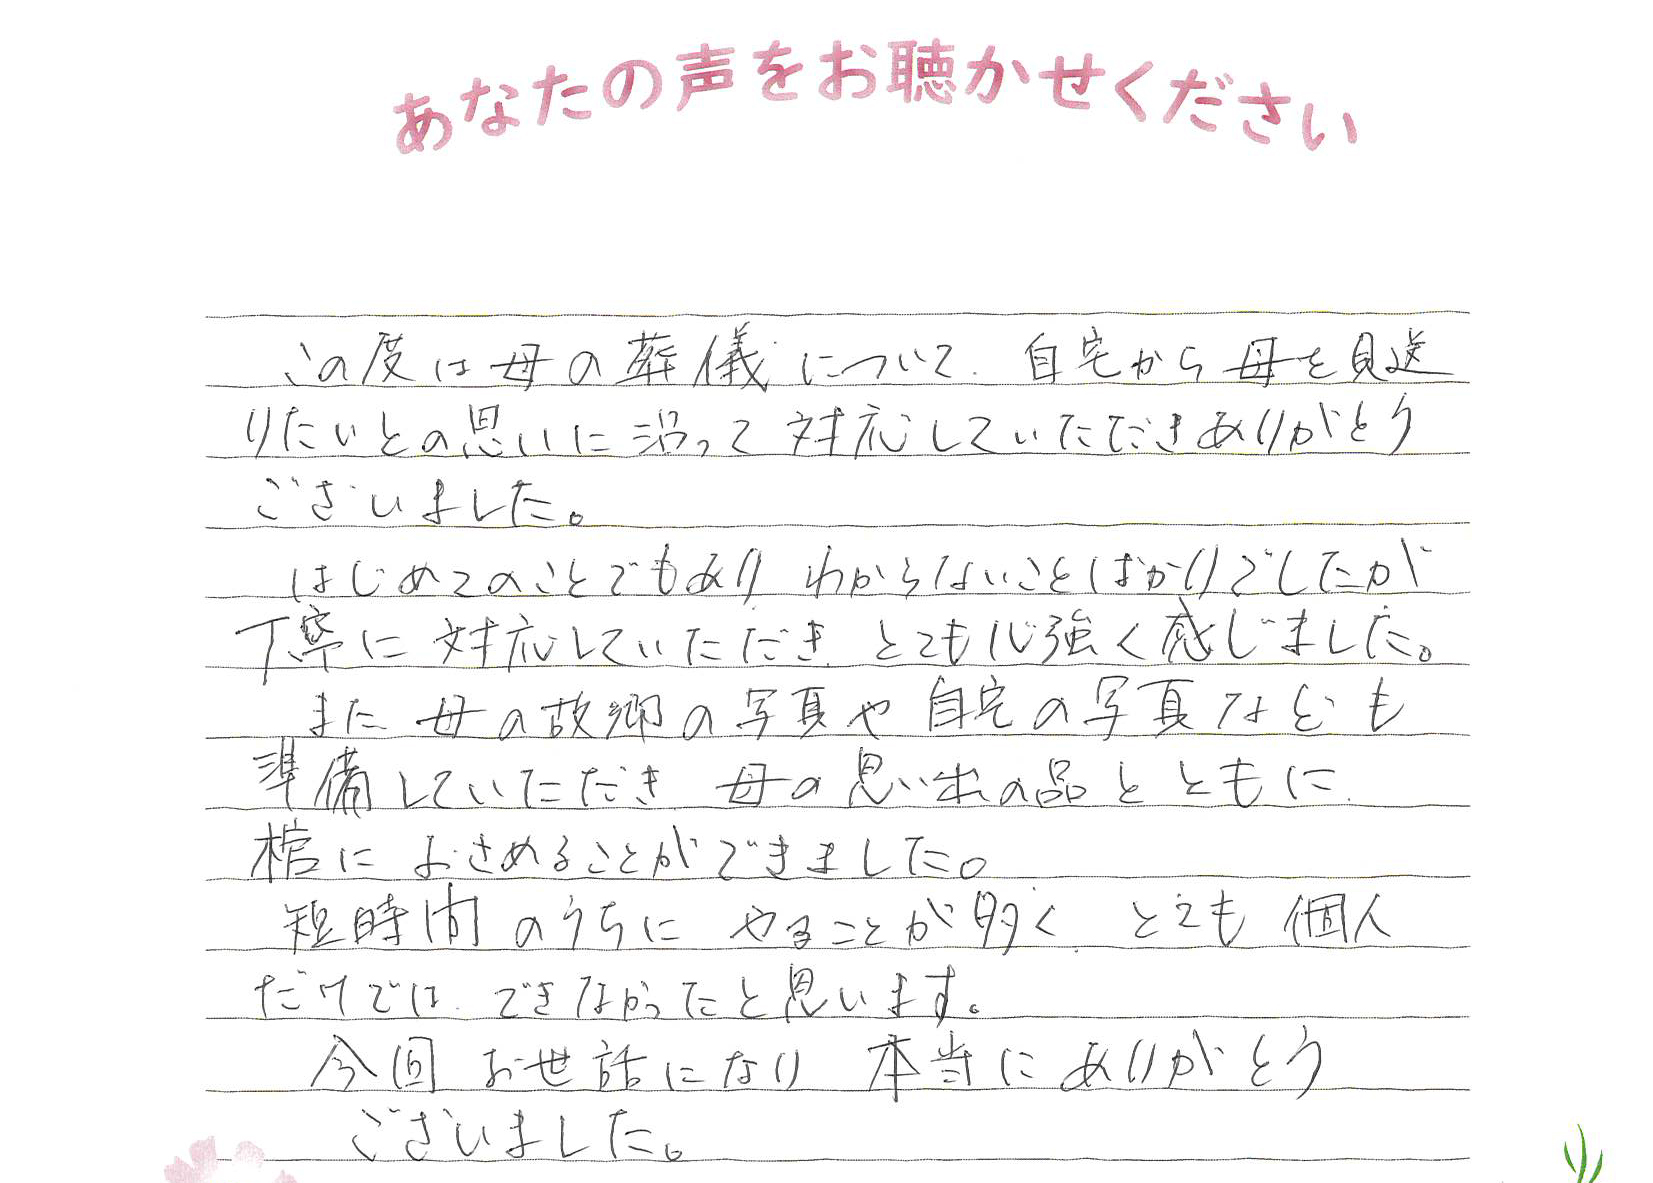 あなたの声をお聴かせください
この度は母の葬儀について、自宅から母を見送
りたいとの思いに沿って対応していただきありがとう
ございました。
はじめてのことでもあり わからないことばかりでしたが
丁寧に対応していただき、とても心強く感じました。
また 母の故郷の写真や自宅の写真なども
準備していただき、母の思い出の品とともに、
棺におさめることができました。
短時間のうちに やることが多く、とても個人
だけでは、できなかったと思います。
今回 お世話になり 本当にありがとう
ございました。